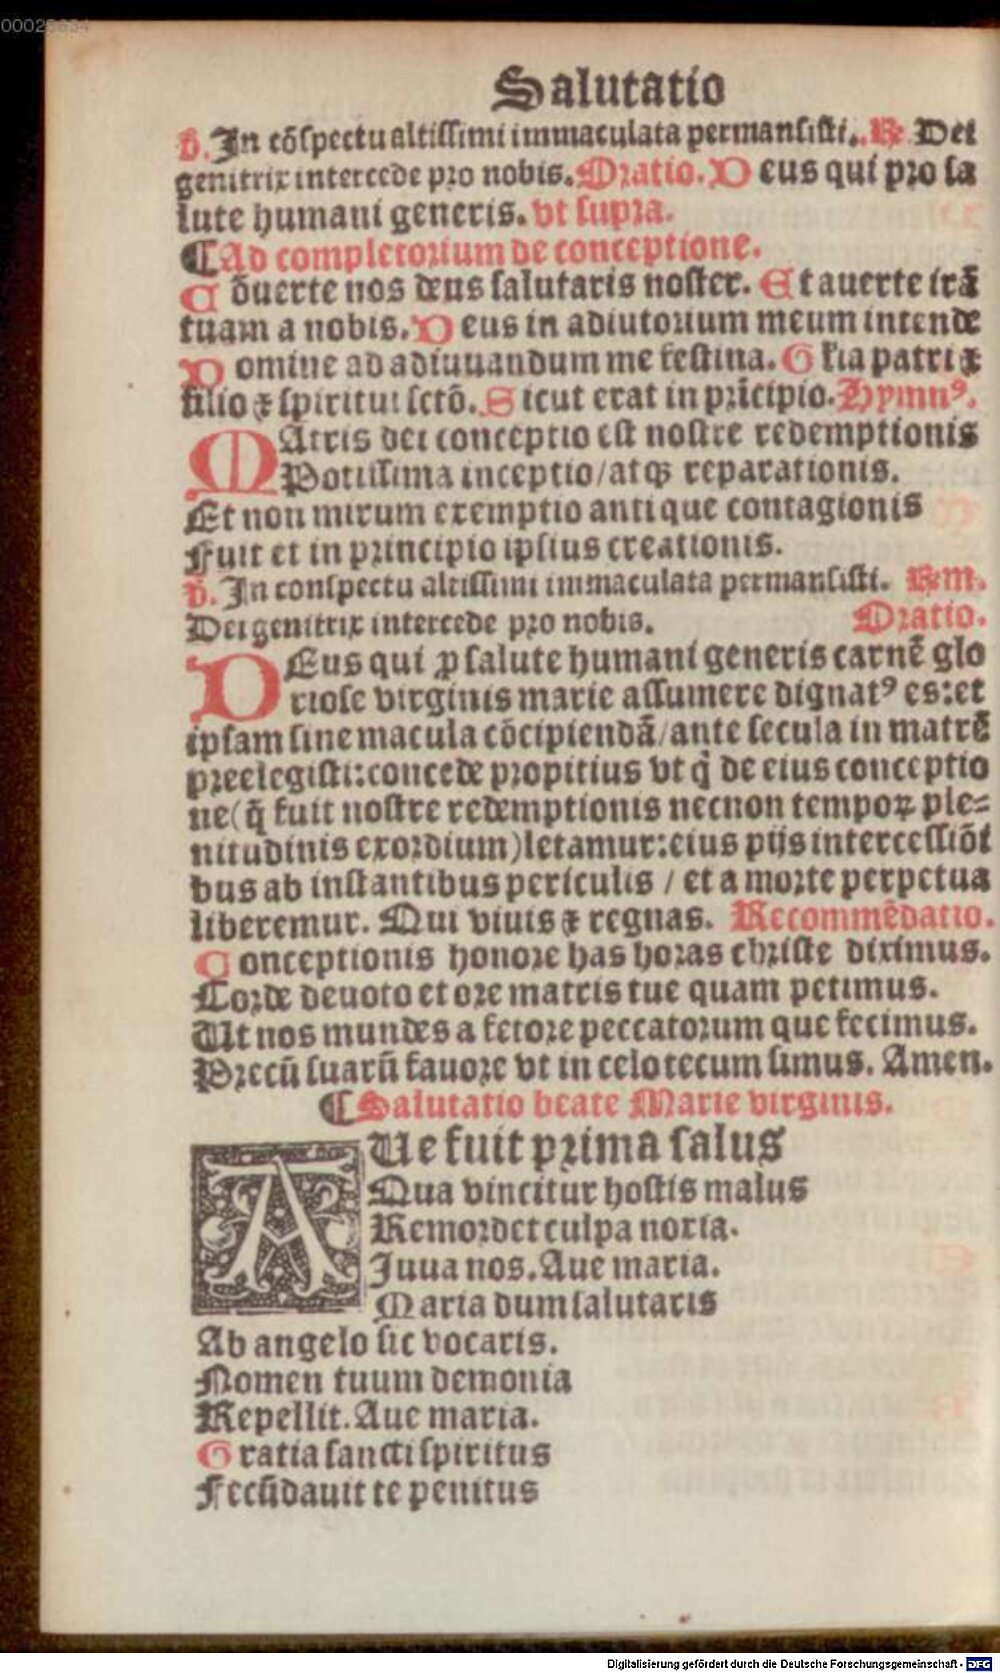 00028654
Salutatio
℣. In cōspectu altissimi immaculata permansisti. ℟. Dei
genitrix intercede pro nobis. Oratio. Deus qui pro sa
lute humani generis. vt supra.
¶ Ad completorium de conceptione.
Cōuerte nos deus salutaris noster. Et auerte irā
tuam a nobis. Deus in adiutorium meum intende
Domine ad adiuuandum me festina. Glia patri ⁊
filio ⁊ spiritui sctō. Sicut erat in prīcipio. Hymnꝰ.
MAtris dei conceptio est nostre redemptionis
Potissima inceptio/atqꝫ reparationis.
Et non mirum exemptio antique contagionis
Fuit et in principio ipsius creationis.
℣. In conspectu altissimi immaculata permansisti. ℟em.
Dei genitrix intercede pro nobis. Oratio.
DEus qui ꝓ salute humani generis carnē glo
riose virginis marie assumere dignatꝰ es:et
ipsam sine macula cōcipiendā/ante secula in matrē
preelegisti:concede propitius vt q̇ de eius conceptio
ne(q̄ fuit nostre redemptionis necnon tempoꝝ ple⸗
nitudinis exordium)letamur:eius pijs intercessiōi
bus ab instantibus periculis / et a morte perpetua
liberemur. Qui viuis ⁊ regnas. Recommēdatio.
Conceptionis honore has horas christe diximus.
Corde deuoto et ore matris tue quam petimus.
Ut nos mundes a fetore peccatorum que fecimus.
Precū suarū fauore vt in celo tecum simus. Amen.
¶ Salutatio beate Marie virginis.
AUe fuit prima salus
Qua vincitur hostis malus
Remordet culpa noxia.
Juua nos. Aue maria.
Maria dum salutaris
Ab angelo sic vocaris.
Nomen tuum demonia
Repellit. Aue maria.
Gratia sancti spiritus
Fecūdauit te penitus
Digitalisierung gefördert durch die Deutsche Forschungsgemeinschaft - DFG